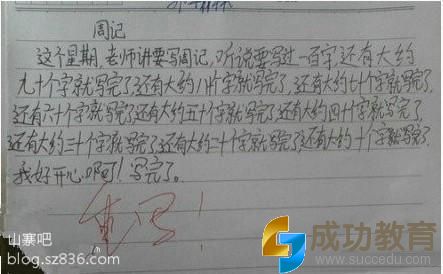 周记
这个星期,老师讲要写周记,听说要写过一百字,还有大约
九十个字就写完了,还有大约八十个字就写完了,还有大约七十个字就写完了,
还有六十个字就写完了,还有大约五十个字就写完了,还有大约四十个字就写完了,
还有大约三十个字就写完了,还有大约二十个字就写完了,还有大约十个字就写完了,
我好开心啊!写完了。
重写!
山寨吧
blog.sz836.com
成功教育
www.succedu.com